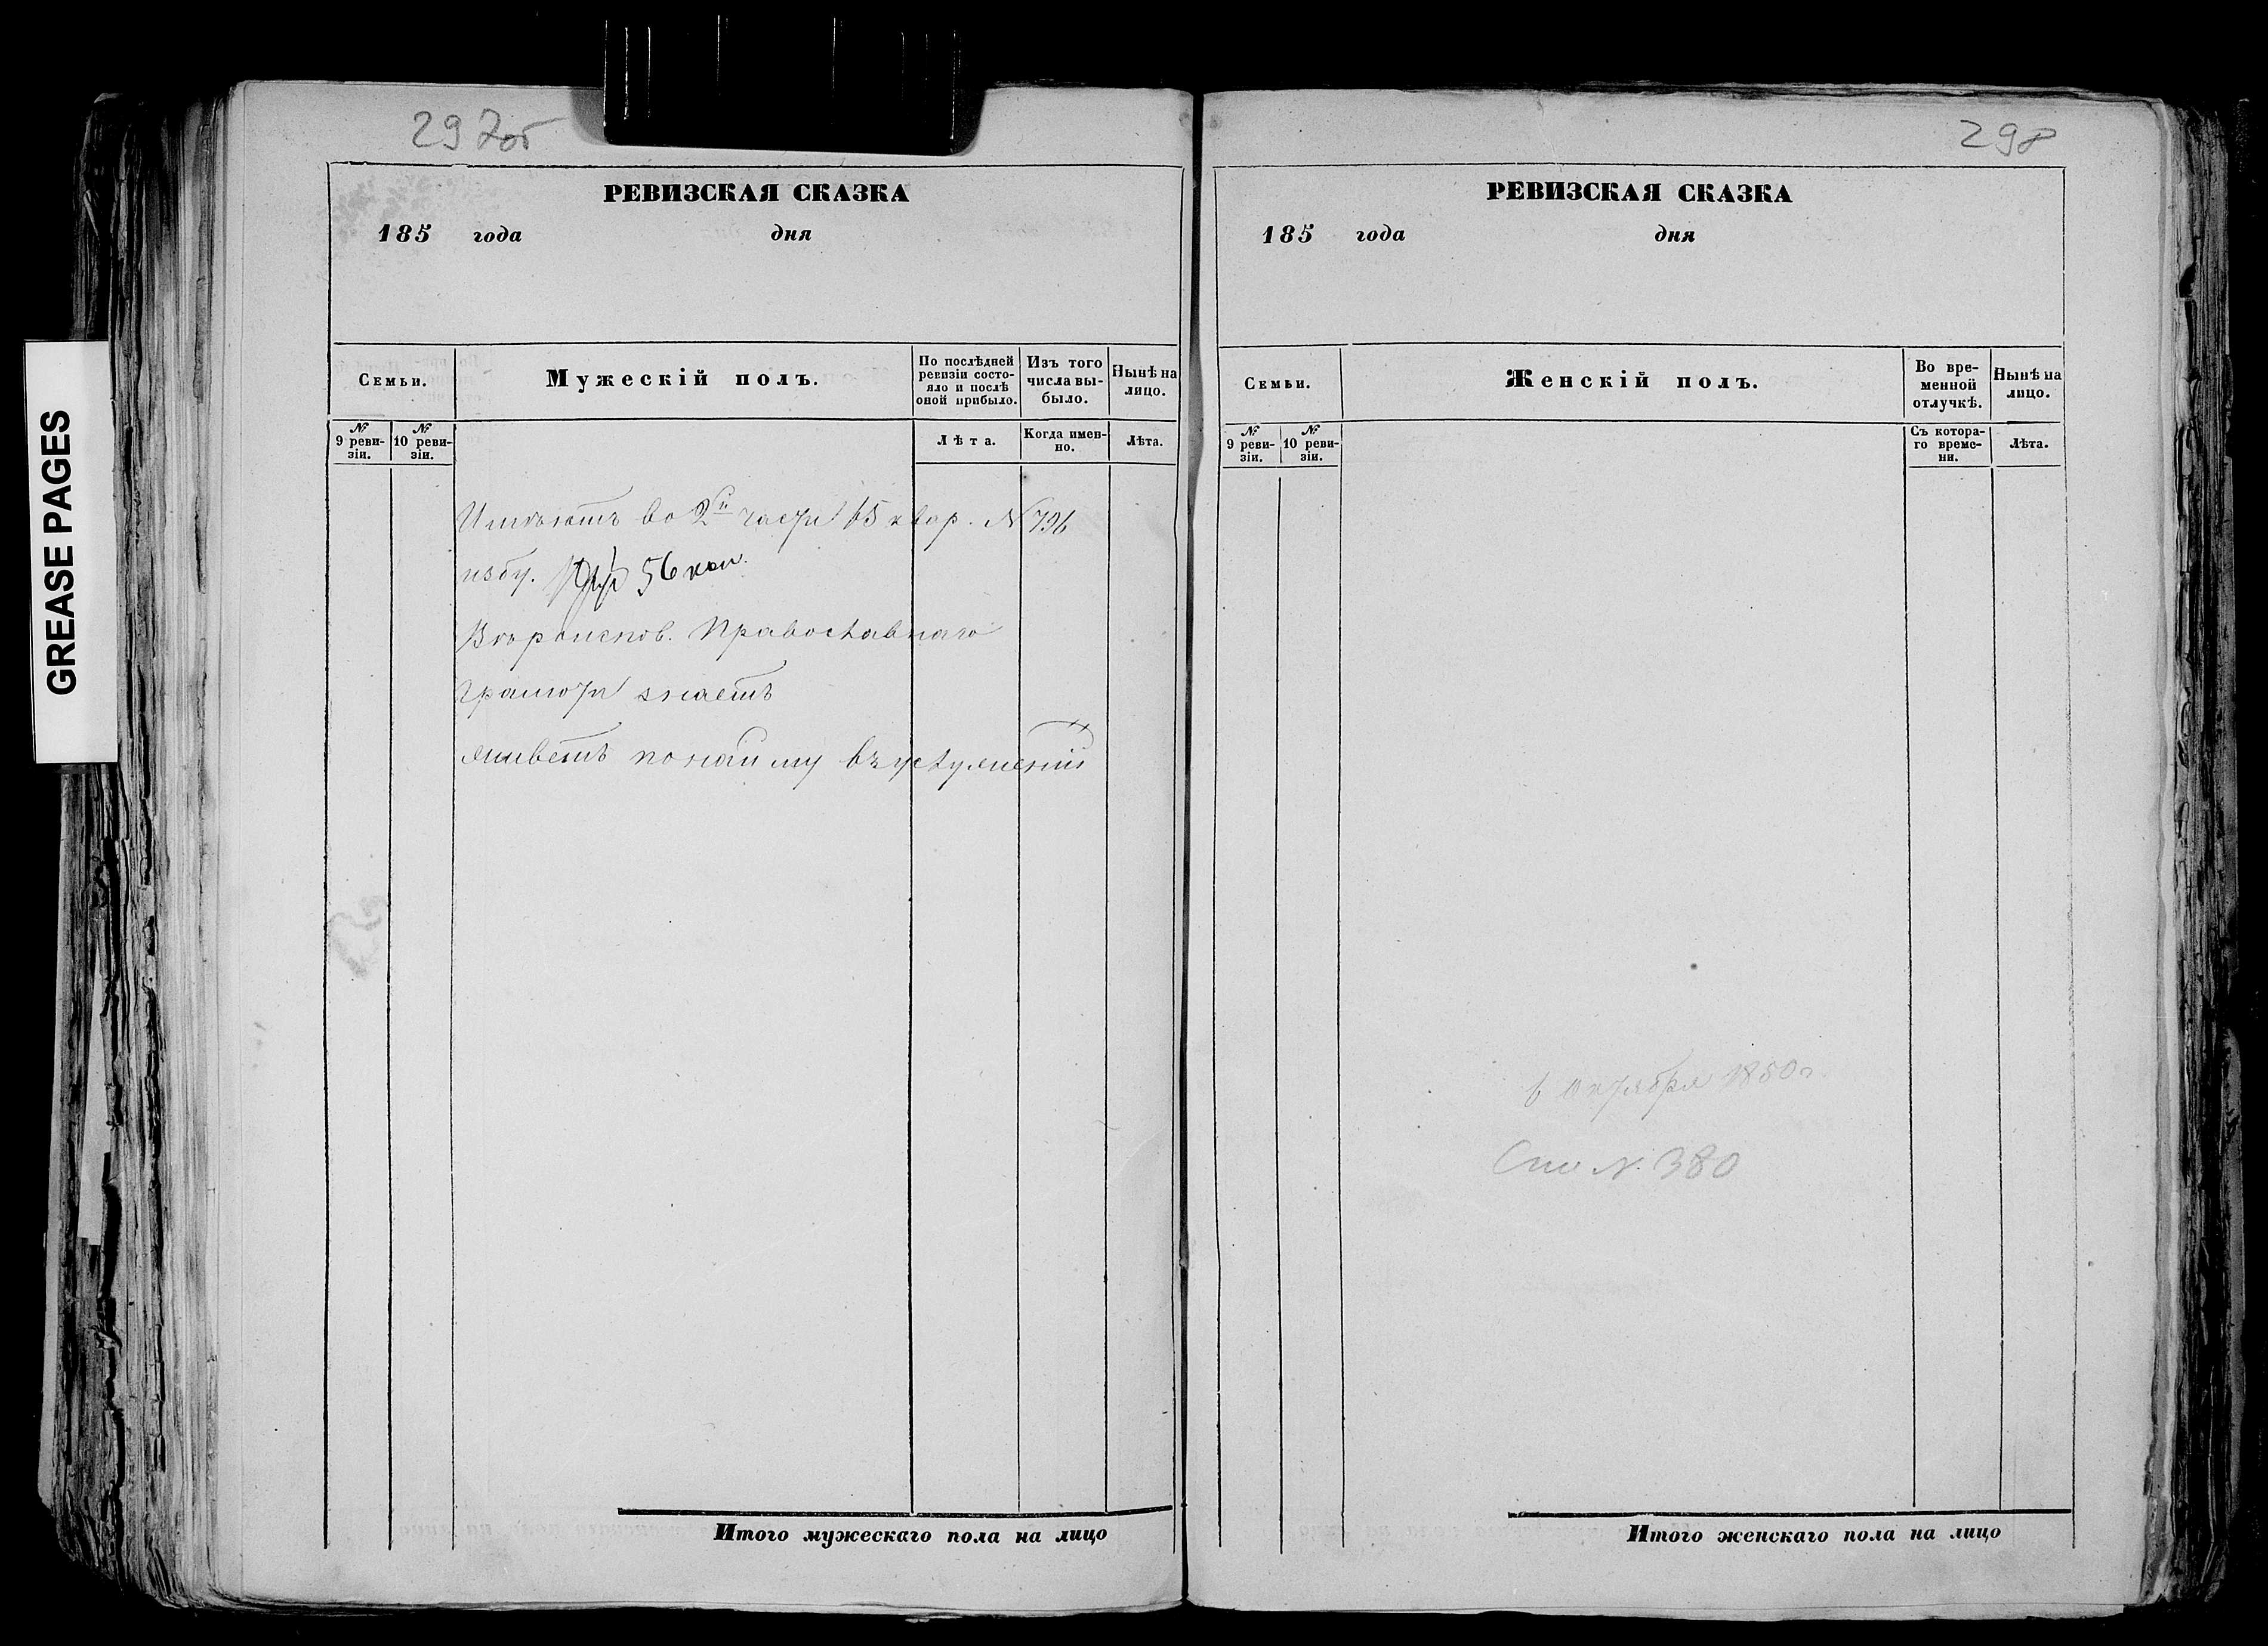 GREASE PAGES
297об
РЕВИЗСКАЯ СКАЗКА
185 года дня
Семьи.
Мужескій полъ.
По послѣдней ревизіи состо-
яло и послѣ
оной прибыло.
Изъ того
числа вы-
было.
Нынѣ на
лицо.
№ 9 реви-
зіи.
№ 10 реви-
зіи.
Лѣта.
Когда имен-
но.
Лѣта.
Имѣютъ во 2й части 65 квар. N 736
избу. 56 коп.
Вѣроиспов. Православнаго
грамоти знаетъ
живетъ по найму въ услуженіи
Итого мужескаго пола на лицо
298
РЕВИЗСКАЯ СКАЗКА
185 года дня
Семьи.
Женскій полъ.
Во вре-
менной
отлучкѣ.
Нынѣ на
лицо.
№ 9 реви-
зіи.
№ 10 реви-
зіи.
Съ котора-
го време-
ни.
Лѣта.
6 Октября 1850 г
N. 380
Итого женскаго пола на лицо